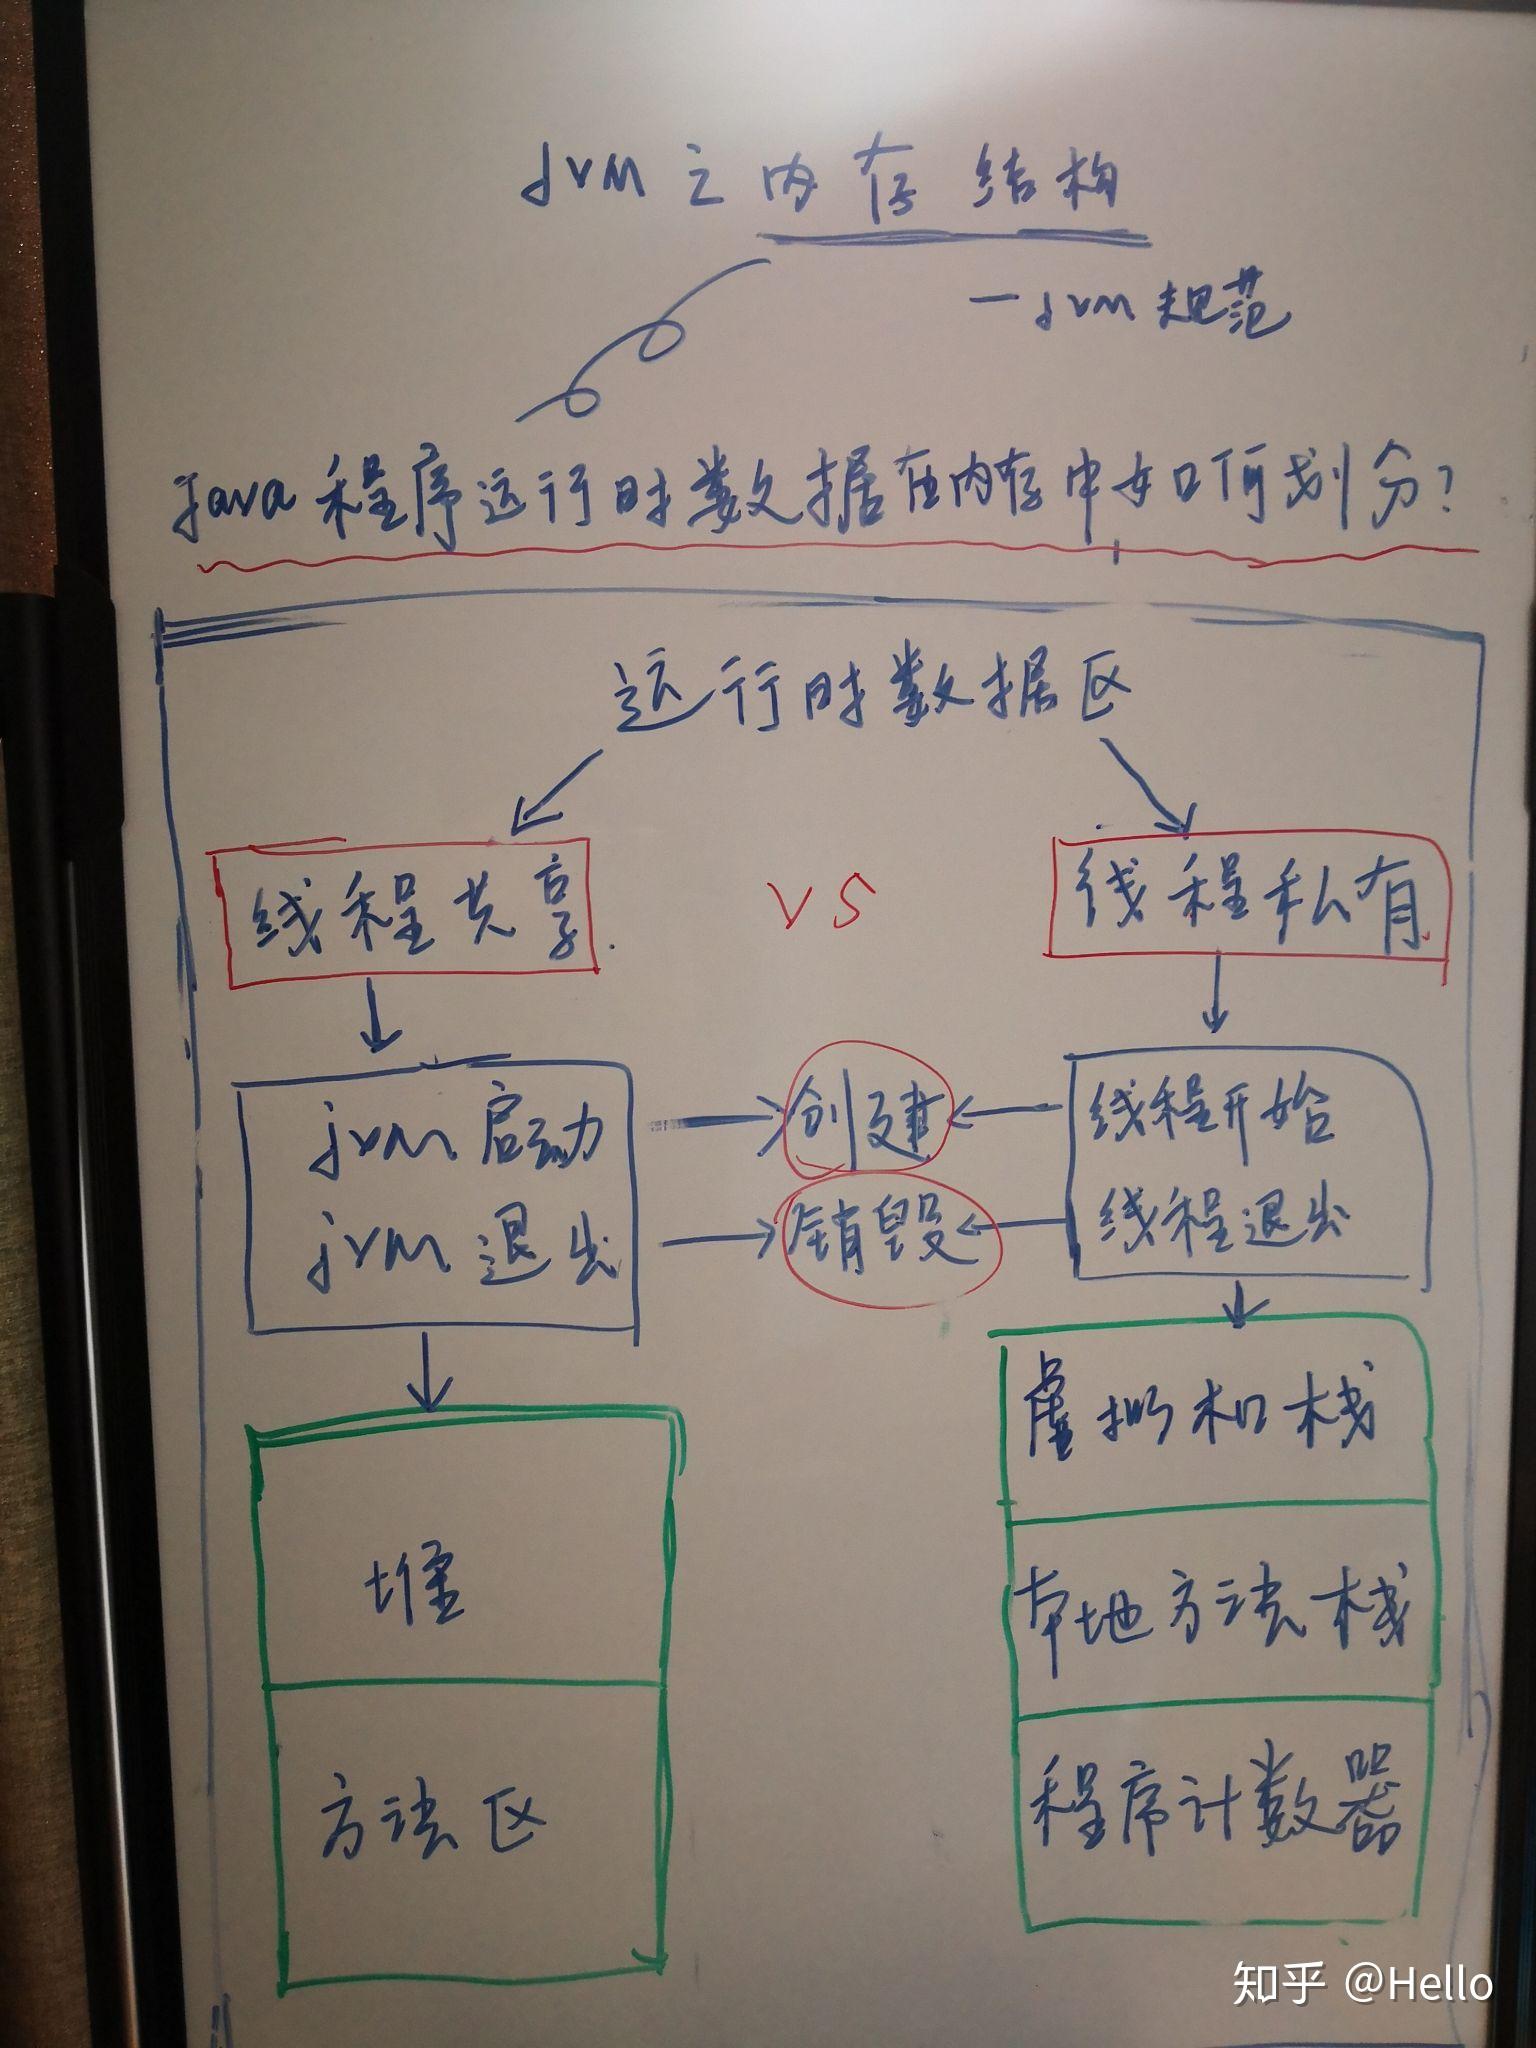 JVM之内存结构
—JVM规范
java程序运行时数据在内存中如何划分?
运行时数据区
线程共享
VS
线程私有
jvm启动
创建
线程开始
jvm退出
销毁
线程退出
虚拟机栈
堆
本地方法栈
方法区
程序计数器
知乎 @Hello